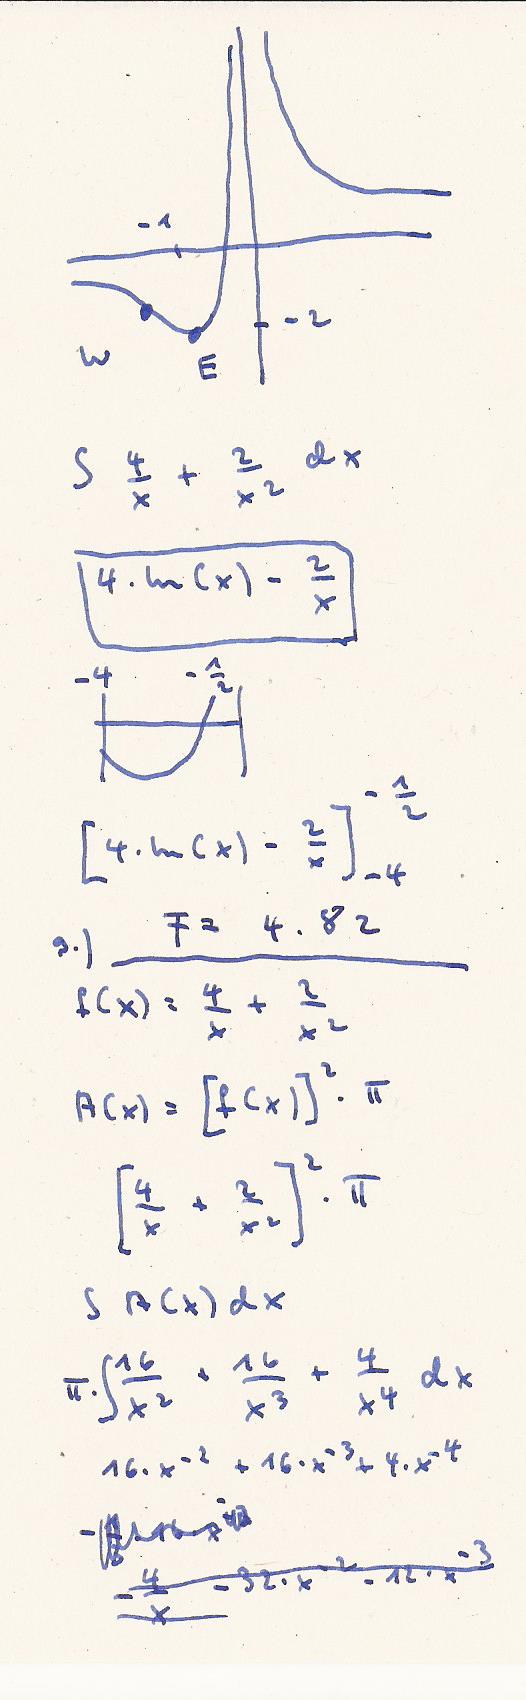 -1
-2
W
E
∫ 4/x + 2/x² dx
4·ln(x) - 2/x
-4 -1/2
[4·ln(x) - 2/x]₋₄^(-1/2)
F = 4.82
f(x) = 4/x + 2/x²
A(x) = [f(x)]²·π
[4/x + 2/x²]²·π
∫ A(x) dx
π·∫ 16/x² + 16/x³ + 4/x⁴ dx
16·x⁻² + 16·x⁻³ + 4·x⁻⁴
-4/x - 32·x⁻² - 12·x⁻³